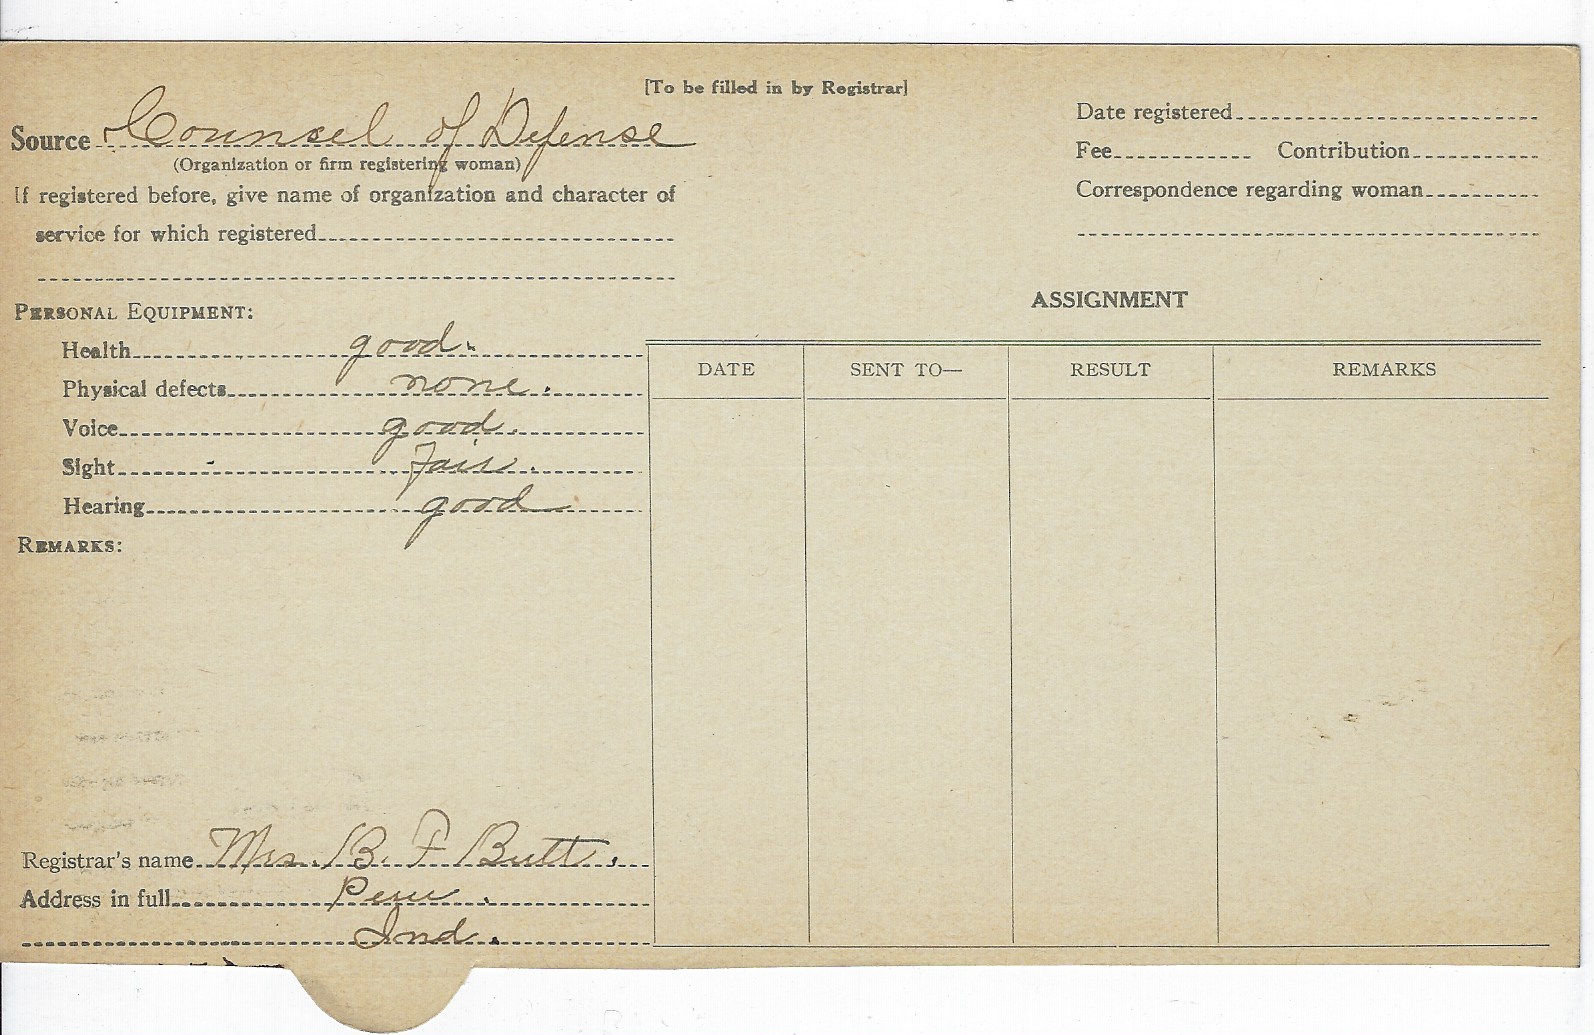 [To be filled in by Registrar]
Source Counsel of Defense
(Organization or firm registering woman)
If registered before, give name of organization and character of
service for which registered
Date registered
Fee Contribution
Correspondence regarding woman
PERSONAL EQUIPMENT:
Health good.
Physical defects none.
Voice good.
Sight Fair.
Hearing good
REMARKS:
ASSIGNMENT
DATE SENT TO— RESULT REMARKS
Registrar's name Mrs. B. F Butt.
Address in full Peru.
Ind.